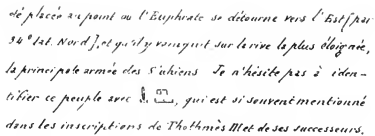 dé placée au point où l'Euphrate se détourne vers l'Est [par
34° lat. Nord], et qu'il y vainquit sur la rive la plus éloignée,
la principale armée des Suhiens Je n'hésite pas à iden-
tifier ce peuple avec , qui est si souvent mentionné
dans les inscriptions de Thothmès III et de ses successeurs.